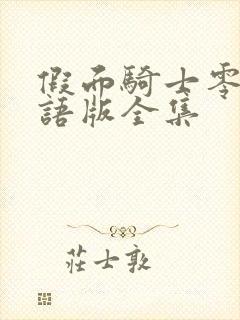 假而騎士零
語版全集
莊士敦